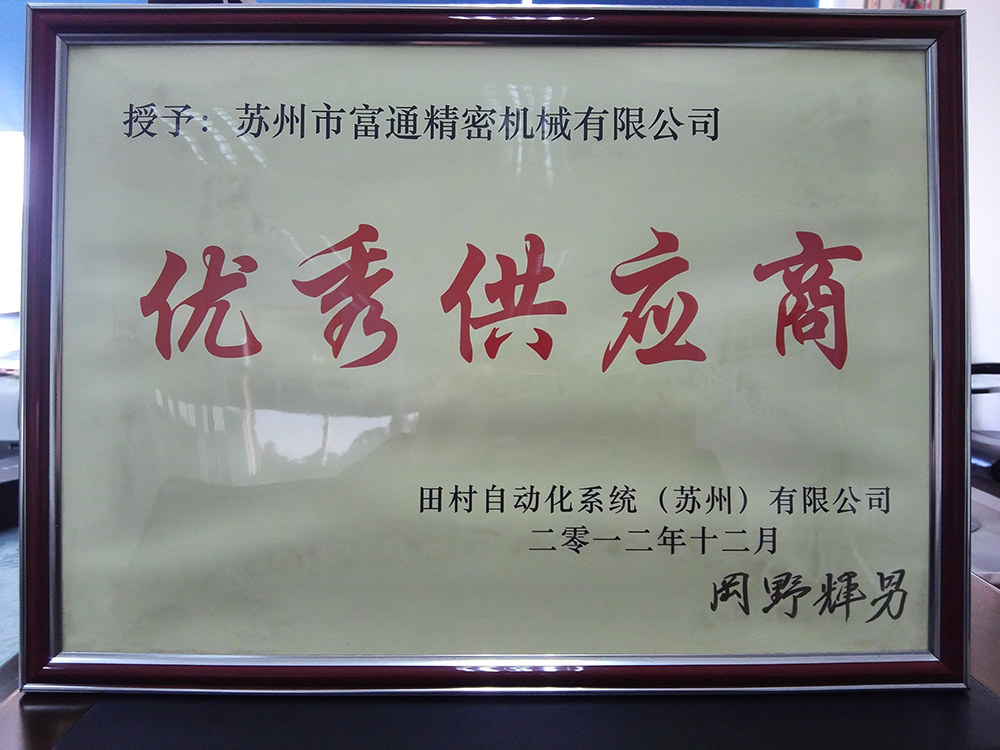 授予：苏州市富通精密机械有限公司
优秀供应商
田村自动化系统（苏州）有限公司
二零一二年十二月
岡野輝男